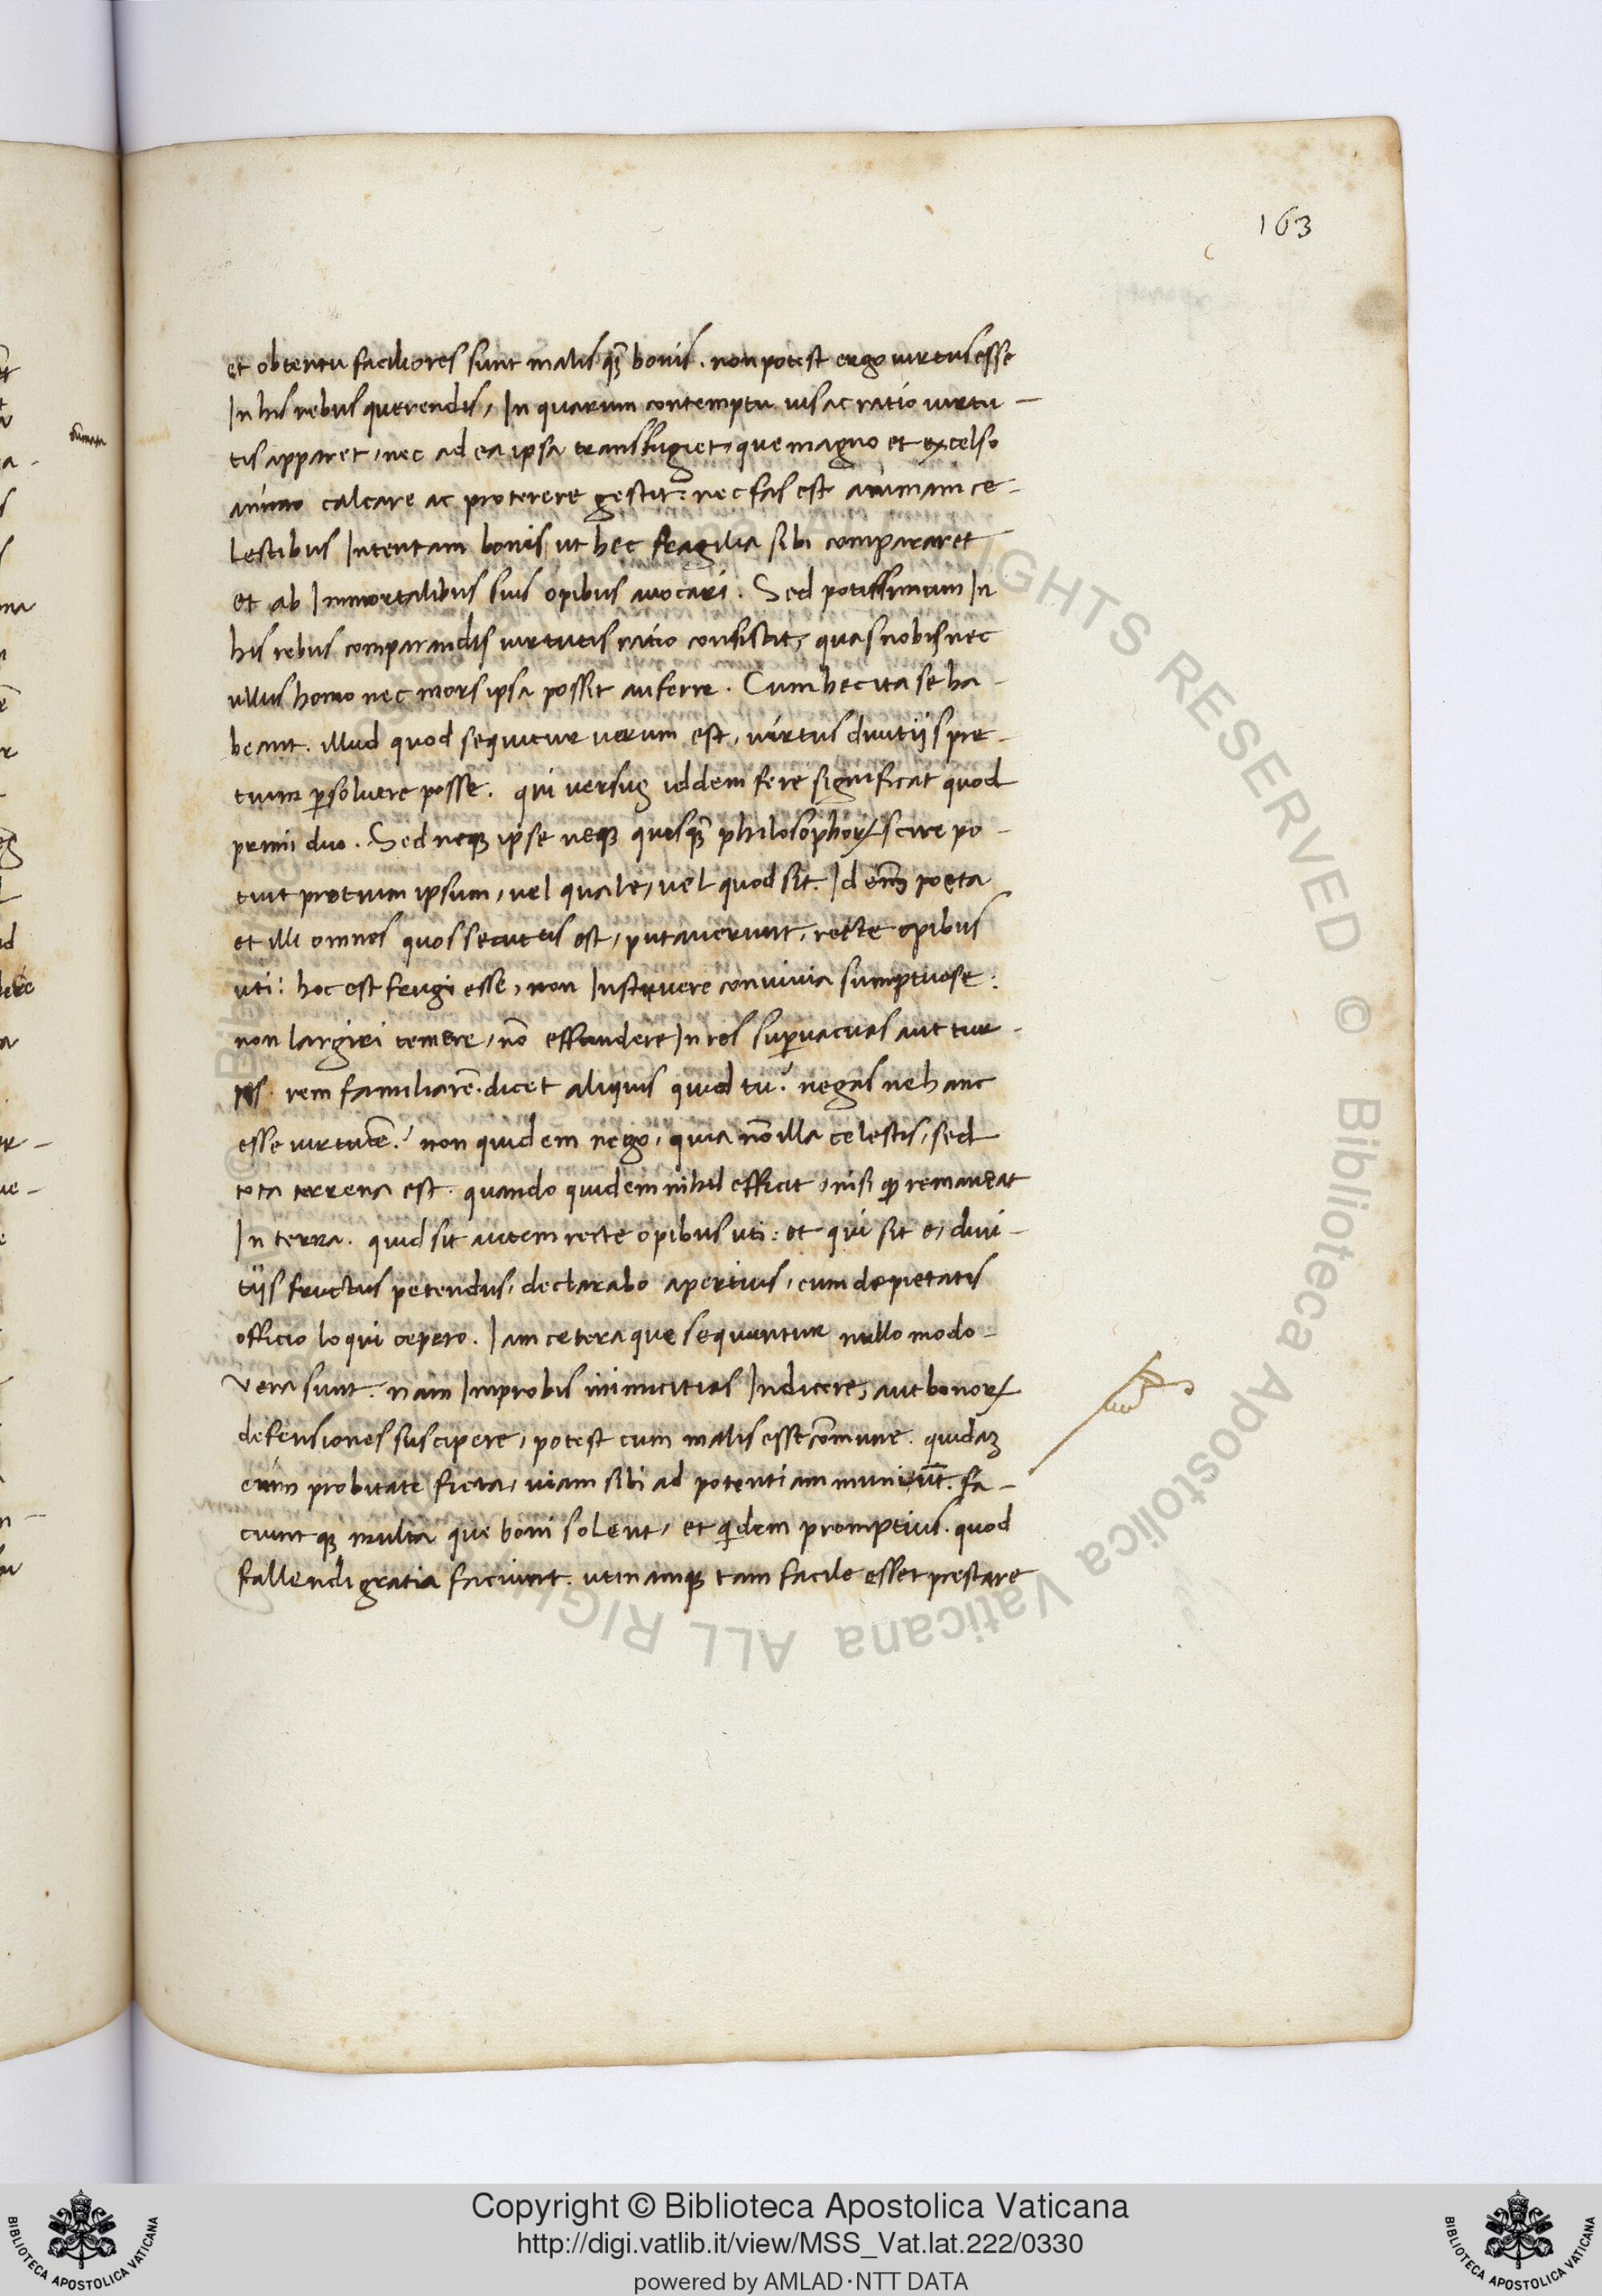 163
et obtentu faciliores sunt malis qȝ bonis. non potest ergo uirtus esse
In his rebus querendis, In quarum contemptu uis ac ratio uirtu-
tis apparet, nec ad ea ipsa transfugiet, que magno et excelso
animo calcare ac proterere gestit: nec fas est animam ce-
lestibus Intentam bonis ut hec fragilia sibi compararet
et ab Inmortalibus suis opibus auocari. Sed potissimum In
his rebus comparandis uirtutis ratio consistit, quas nobis nec
ullus homo nec mors ipsa possit auferre. Cum hec ita se ha-
beant. illud quod sequitur uerum est, uirtus diuitijs pre-
tium ꝑsoluere posse. qui uersus iddem fere significat quod
primi duo. Sed neqȝ ipse neqȝ quisqȝ philosophoꝝ scire po-
tuit pretium ipsum, uel quale, uel quod sit. Id eni̅ poeta
et illi omnes quos secutus est, putauerunt, recte opibus
uti: hoc est frugi esse, non Instruere conuiuia sumptuose.
non largiri temere, no̅ effundere In res suꝑuacuas aut tur-
pes. rem familiare̅. dicet aliquis quid tu? negas ne hanc
esse uirtute̅? non quidem nego, quia no̅ illa celestis, sed
tota terrena est. quando quidem nihil efficit, nisi qd remaneat
In terra. quid sit autem recte opibus uti: et qui sit e, diui-
tijs fructus petendus, declarabo apertius, cum de pietatis
officio loqui cepero. Iam cetera que sequuntur nullo modo-
vera sunt. nam Improbis inimicitias Indicere, aut bonoꝝ
defensiones suscipere, potest cum malis esse co̅mune. quidaȝ
enim probitate ficta, uiam sibi ad potentiam muniu̅t. fa-
ciunt qȝ multa que boni solent, et quidem promptius. quod
fallendi gratia faciunt. utinamqȝ tam facile esset prestare
© Biblioteca Apostolica Vaticana ALL RIGHTS RESERVED
Copyright © Biblioteca Apostolica Vaticana
http://digi.vatlib.it/view/MSS_Vat.lat.222/0330
powered by AMLAD·NTT DATA
BIBLIOTECA APOSTOLICA VATICANA
BIBLIOTECA APOSTOLICA VATICANA